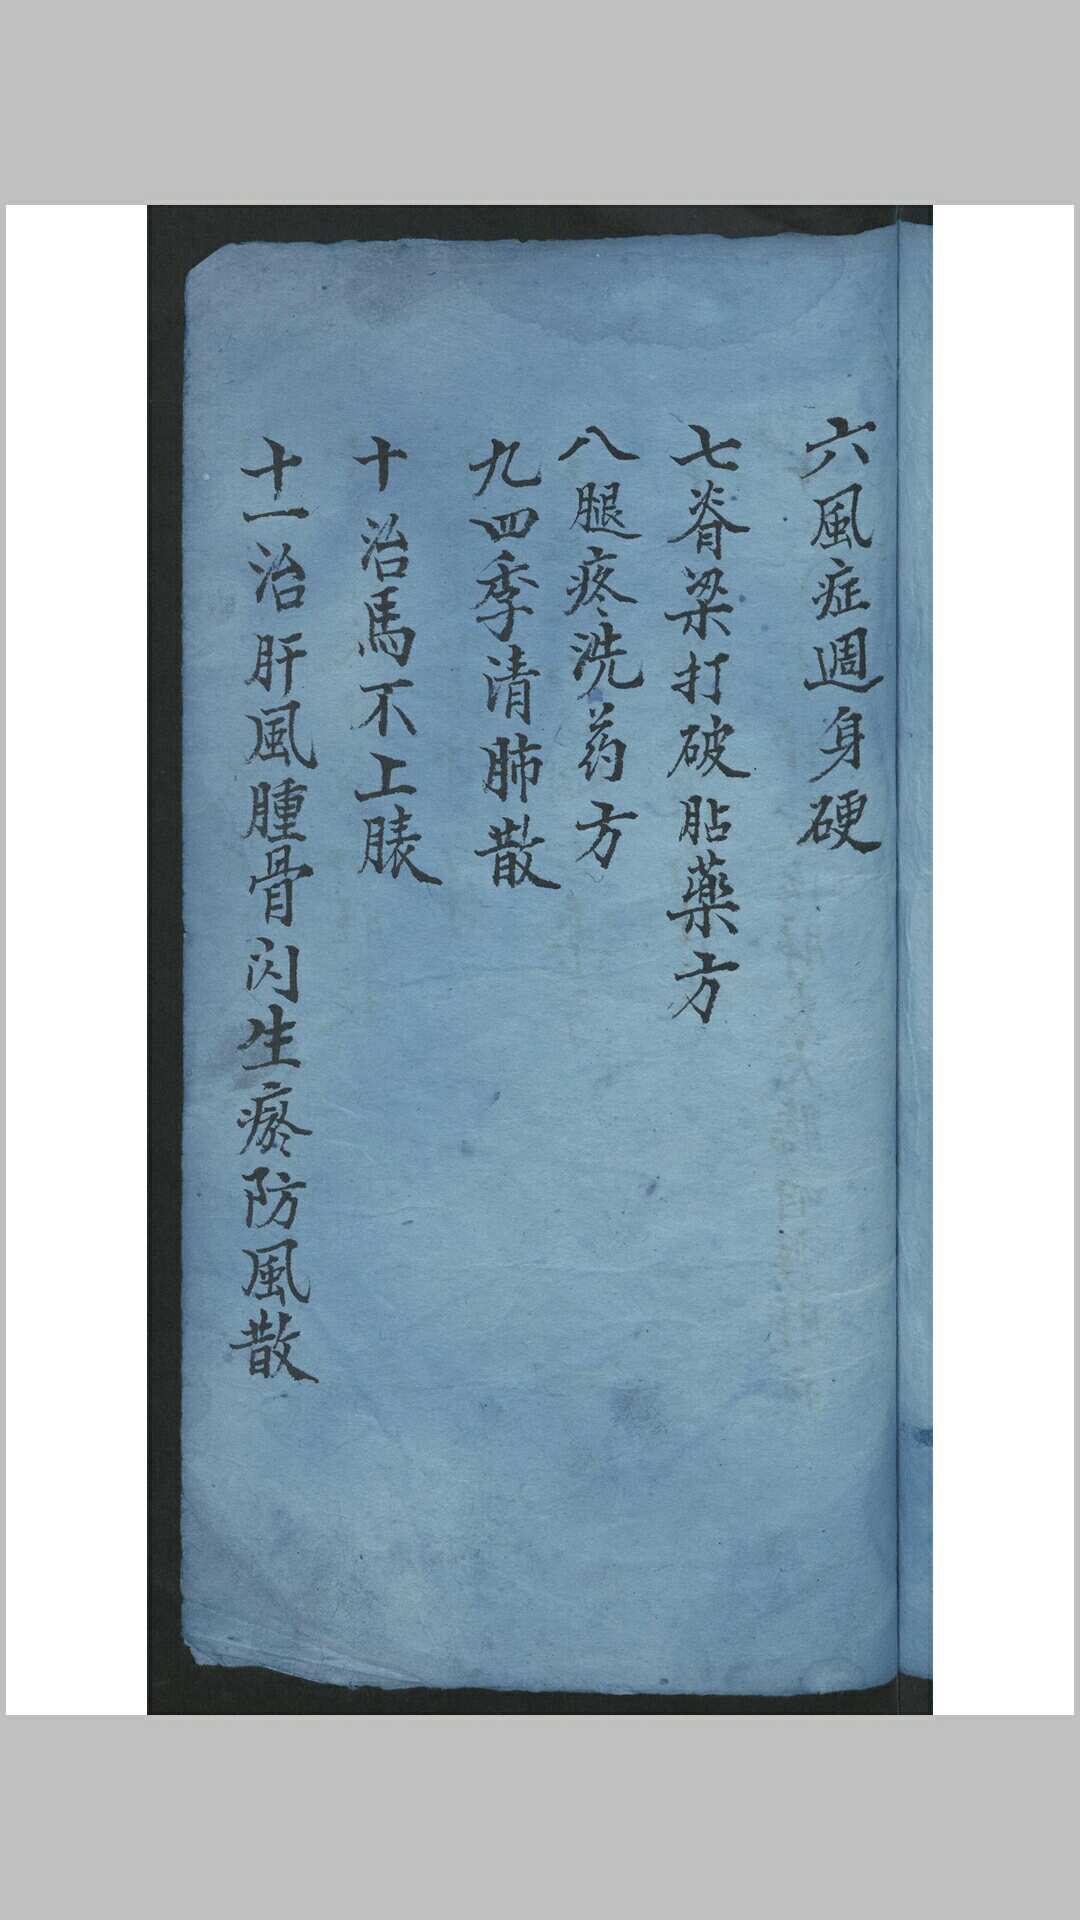 六風症週身硬
七脊梁打破貼藥方
八腿疼洗药方
九四季清肺散
十治馬不上膘
十一治肝風腫骨闪生瘀防風散